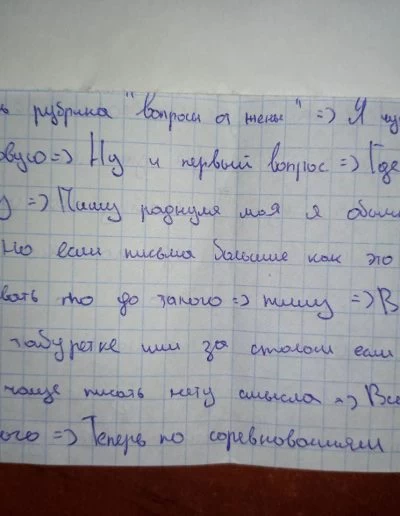 ь рубрика "вопросы от жены" => Я чу
овую => Ну и первый вопрос => Где
у => Пишу роднуля моя я обыч
но если письма большие как это
вать то до такого => пишу => В
табуретке или за столом если
чаще писать нету смысла => Все
ого => Теперь по соревнованиям